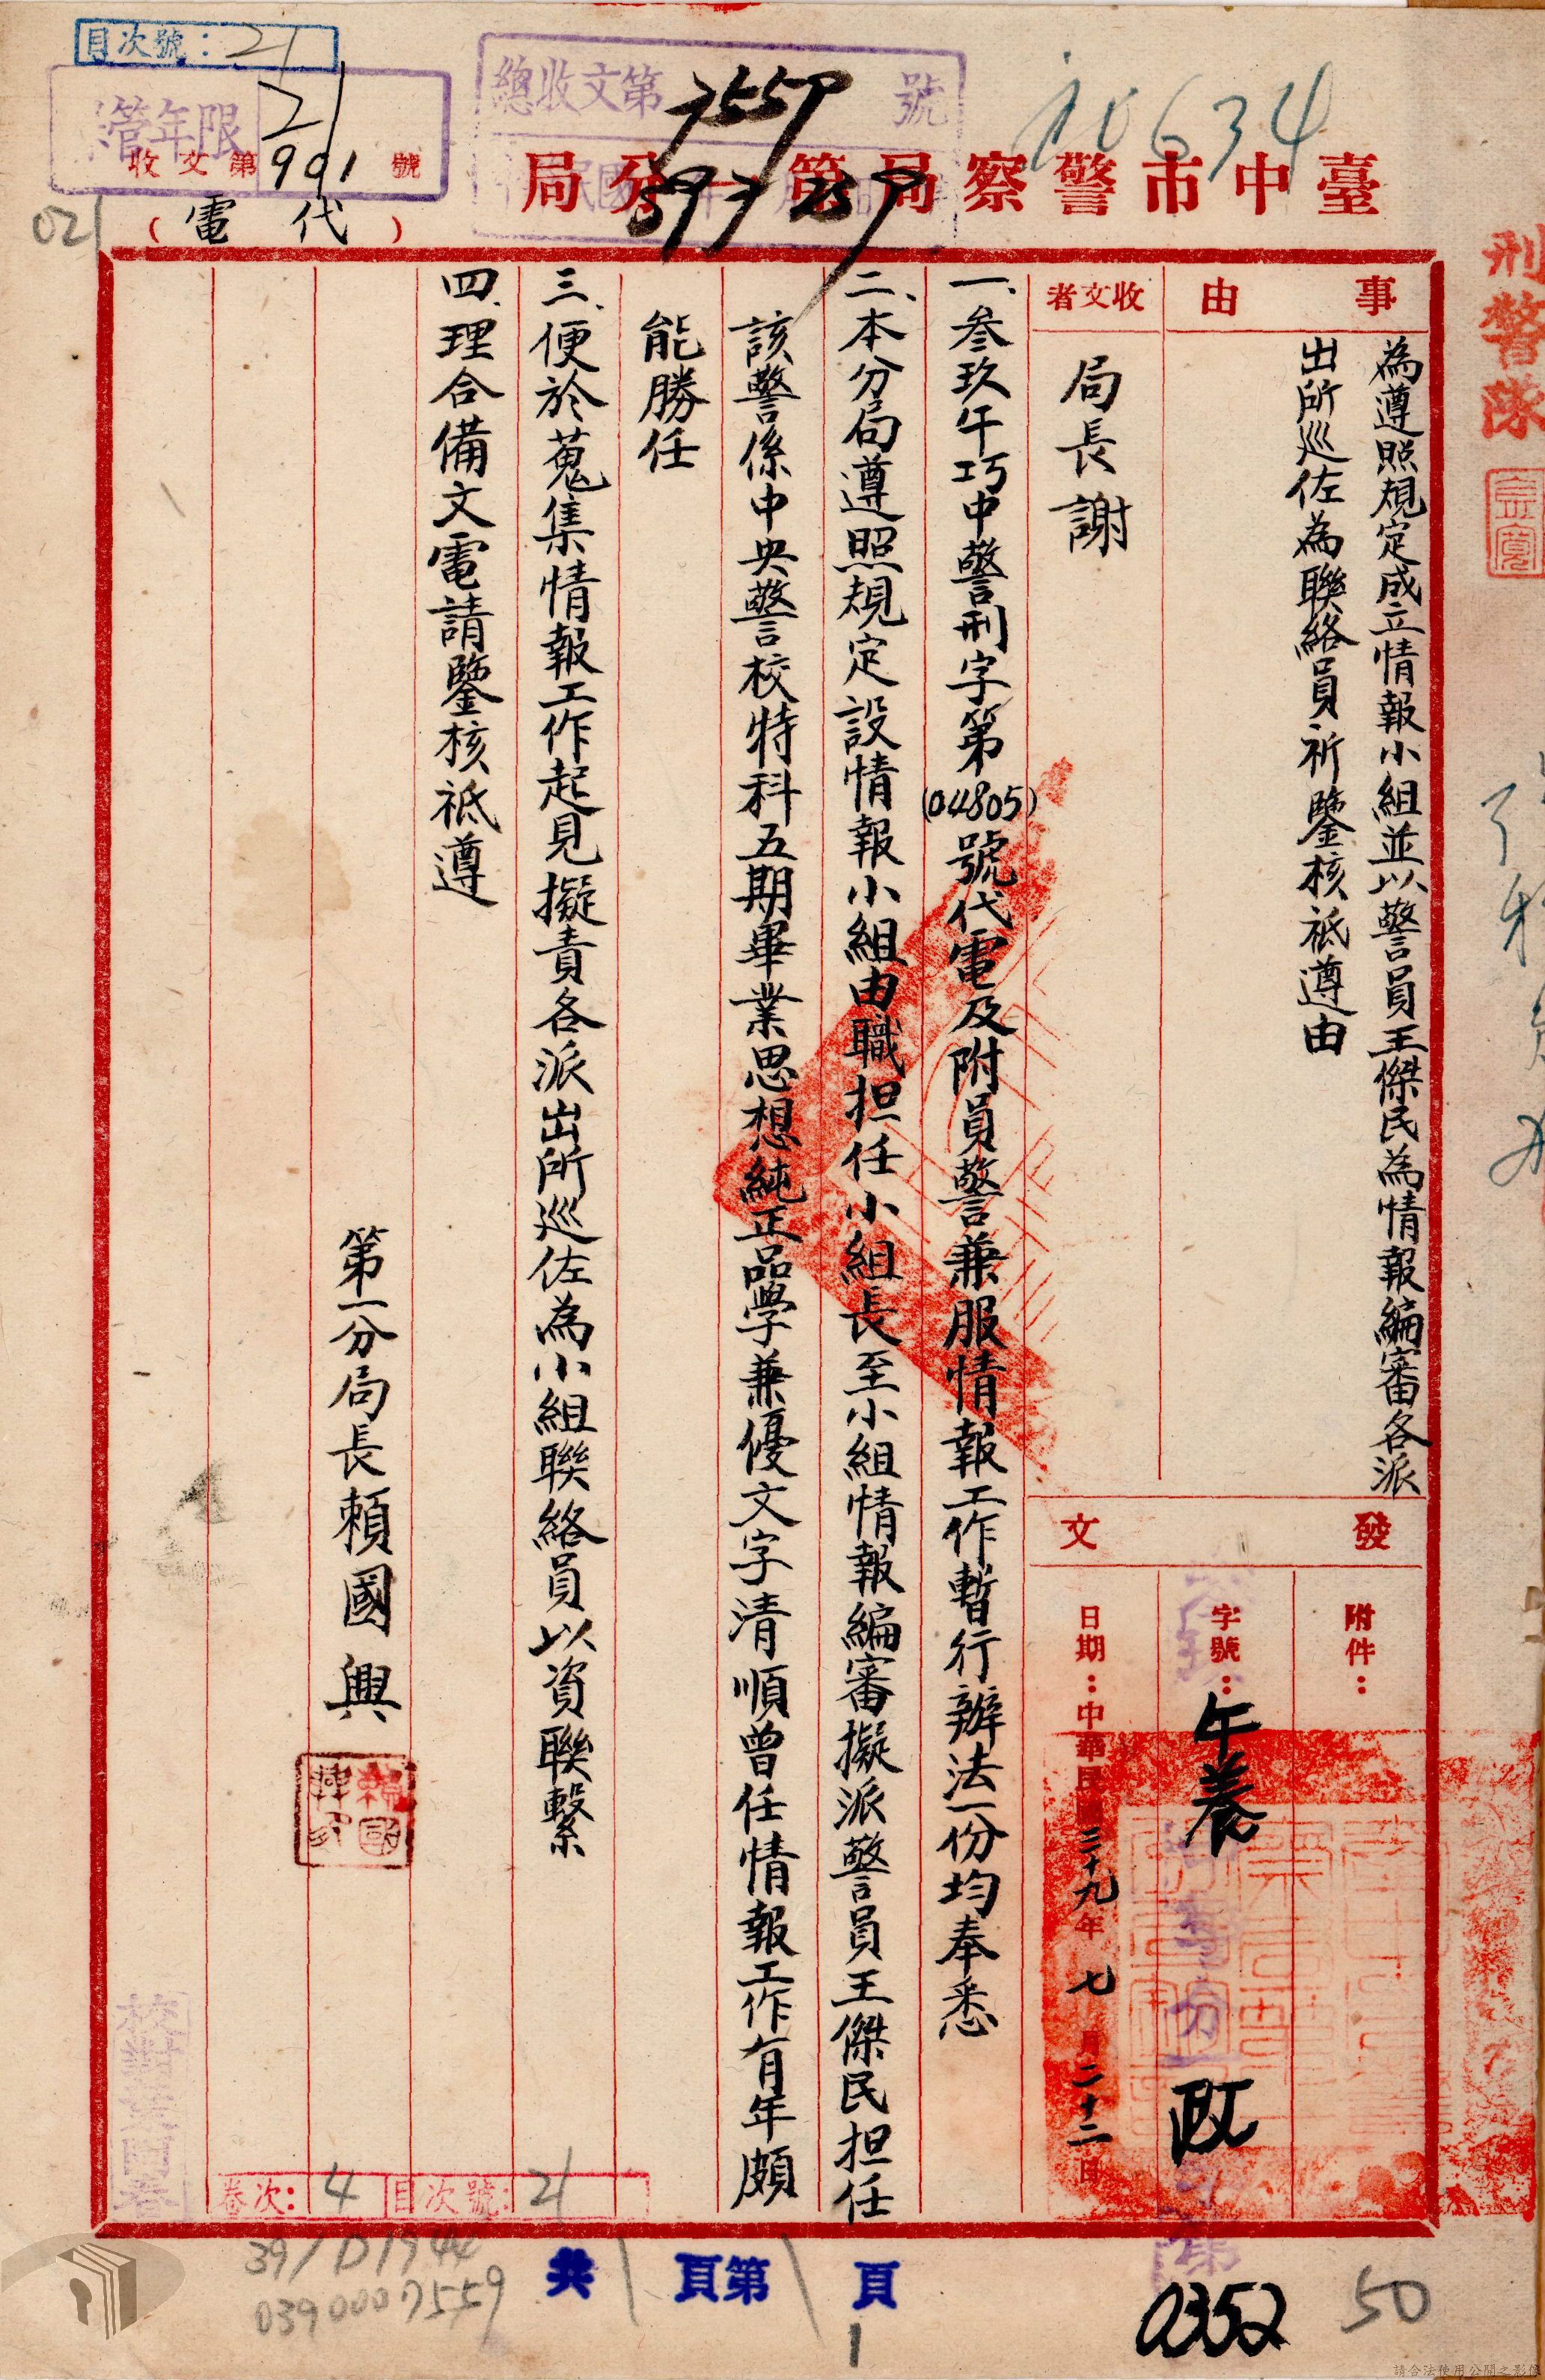 目次號：21
限年管
21
收文第991號
021
總收文第7559號
39 7 25
10634
臺中市警察局第一分局
（代電）
刑警隊
事由
為遵照規定成立情報小組並以警員王傑民為情報編審各派
出所巡佐為聯絡員祈鑒核祗遵由
收文者
局長謝
發文
附件：
字號：午養 政
日期：中華民國三十九年七月二十二日
一、叁玖午巧中警刑字第(04805)號代電及附員警兼服情報工作暫行辦法一份均奉悉
二、本分局遵照規定設情報小組由職担任小組長至小組情報編審擬派警員王傑民担任
該警係中央警校特科五期畢業思想純正品學兼優文字清順曾任情報工作有年頗
能勝任
三、便於蒐集情報工作起見擬責各派出所巡佐為小組聯絡員以資聯繫
四、理合備文電請鑒核祗遵
第一分局長賴國興
卷次：4 目次號：21
39/D1944
0390007559
共 頁第 頁
1
0352
50
請合法使用公開之影像